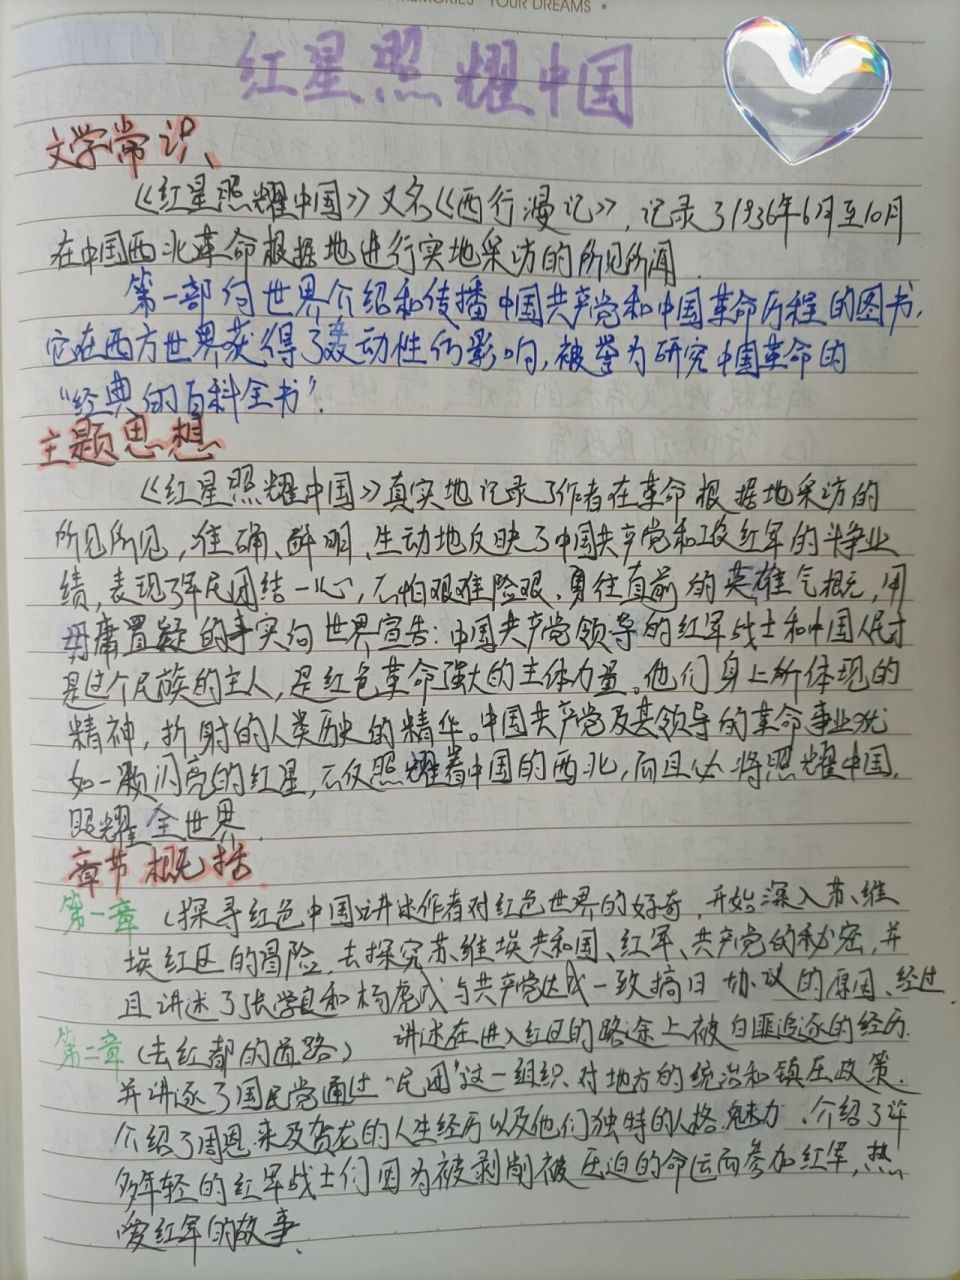 YOUR DREAMS
红星照耀中国
文学常识、
《红星照耀中国》又名《西行漫记》，记录了1936年6月至10月
在中国西北革命根据地进行实地采访的所见所闻
第一部向世界介绍和传播中国共产党和中国革命历程的图书，
它在西方世界获得了轰动性的影响，被誉为研究中国革命的
“经典的百科全书”.
主题思想
《红星照耀中国》真实地记录了作者在革命根据地采访的
所见所见，准确、鲜明、生动地反映了中国共产党和工农红军的斗争业
绩，表现了军民团结一心，不怕艰难险艰、勇往直前的英雄气概，用
毋庸置疑的事实向世界宣告：中国共产党领导的红军战士和中国人民才
是这个民族的主人，是红色革命强大的主体力量。他们身上所体现的
精神，折射的人类历史的精华。中国共产党及其领导的革命事业犹
如一颗闪亮的红星，不仅照耀着中国的西北，而且必将照耀中国，
照耀全世界.
章节概括.
第一章（探寻红色中国）讲述作者对红色世界的好奇，开始深入苏、维
埃红区的冒险，去探究苏维埃共和国、红军、共产党的秘密，并
且讲述了张学良和杨虎成与共产党达成一致搞日协议的原因、经过.
第二章（去红都的道路）讲述在进入红区的路途上被白匪追逐的经历.
并讲逐了国民党通过“民团”这一组织对地方的统治和镇压政策.
介绍了周恩来及贺龙的人生经历以及他们独特的人格魅力、介绍了许
多年轻的红军战士们因为被剥削被压迫的命运而参加红军，热
爱红军的故事.